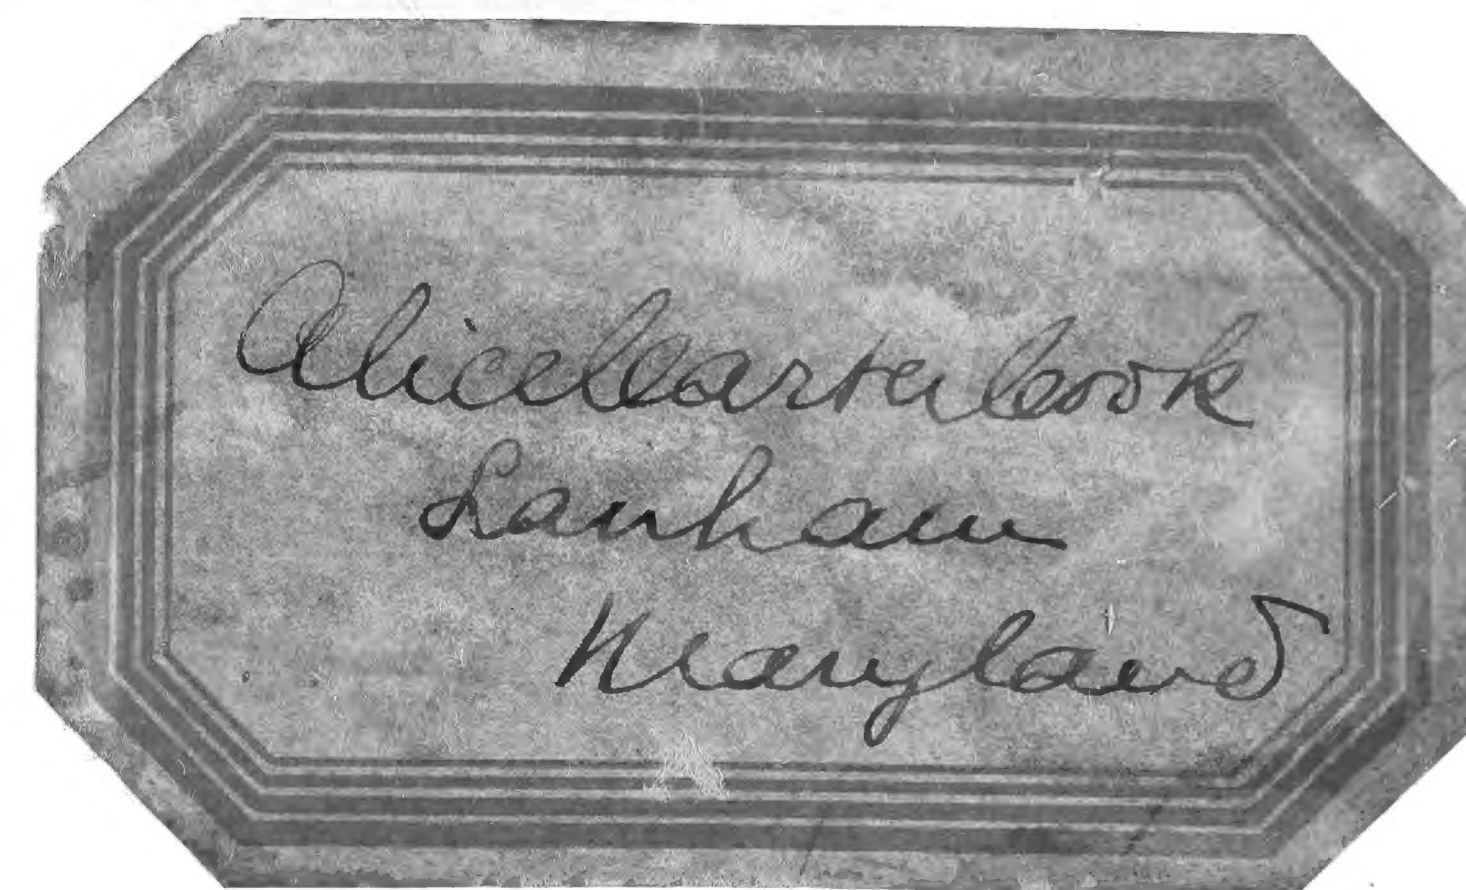 Alice Carter Cook
Lanham
Maryland